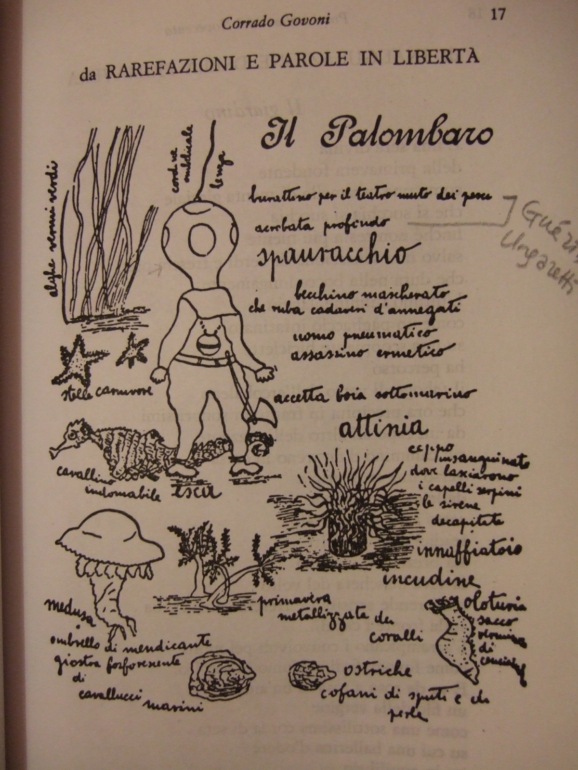 Corrado Govoni
17
da RAREFAZIONI E PAROLE IN LIBERTÀ
Il Palombaro
alghe vermi verdi
lenza
burattino per il teatro muto dei pesci
acrobata profondo
spauracchio
becchino mascherato
che ruba cadaveri d'annegati
uomo pneumatico
assassino ermetico
accetta boia sottomarino
stelle carnivore
cavallino
indomabile
esca
attinia
ceppo
insanguinato
dove lasciarono
i capelli serpini
le sirene
decapitate
innaffiatoio
incudine
medusa
ombrello di mendicante
giostra fosforescente
di
cavallucci
marini
primavera
metallizzata dei
coralli
oloturia
sacco
di
ostriche
cofani di sputi e di
perle
Ungaretti